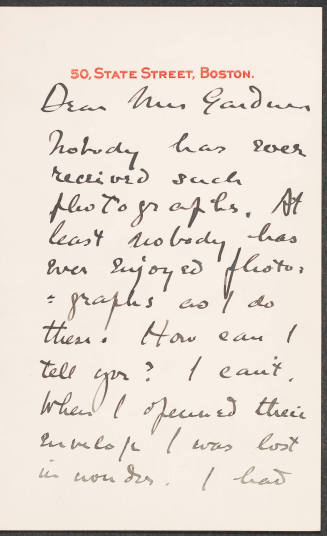 50, STATE STREET, BOSTON.
Dear Mrs Gardner
Nobody has ever
received such
photographs. At
least nobody has
ever enjoyed photo=
=graphs as I do
these. How can I
tell you? I can't.
When I opened their
envelope I was lost
in wonder. I had